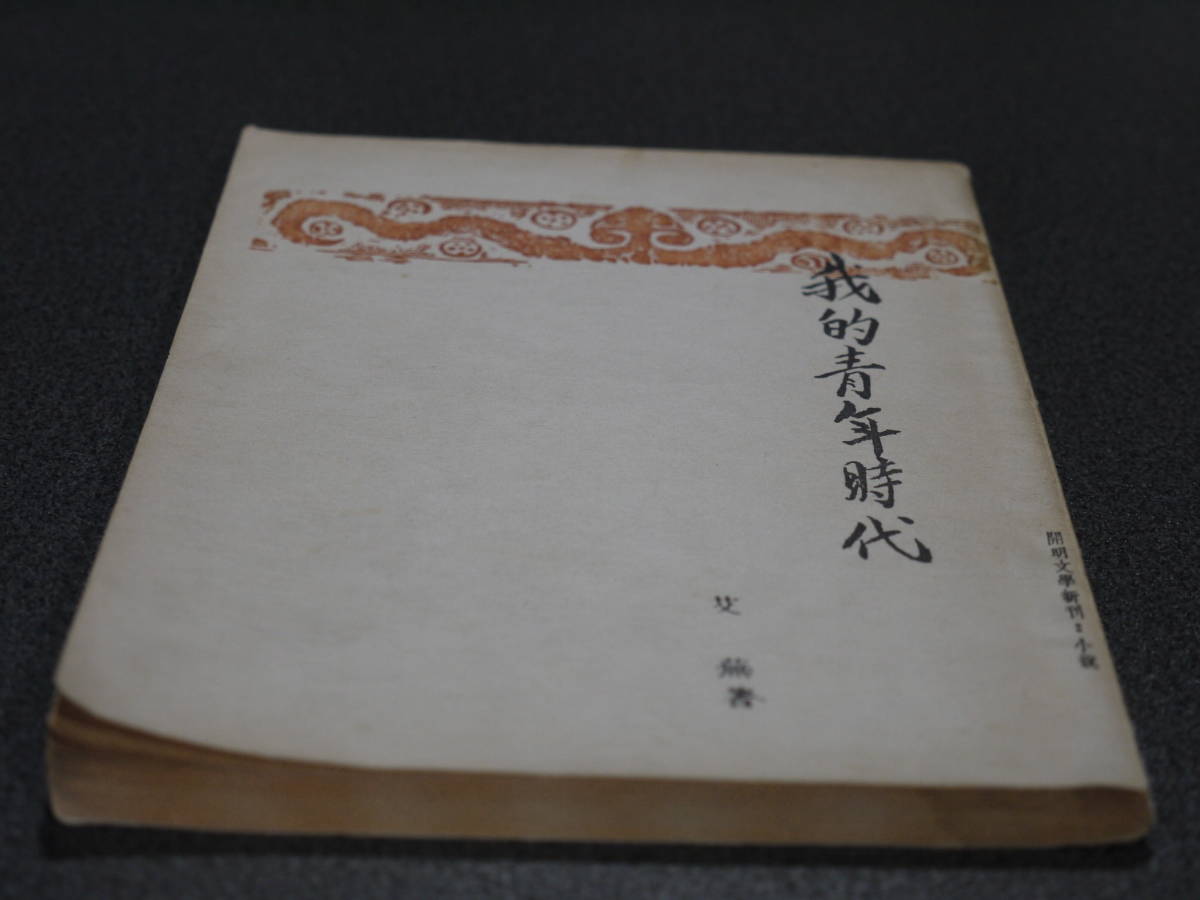 開明文學新刊：小說
我的青年時代
艾蕪著